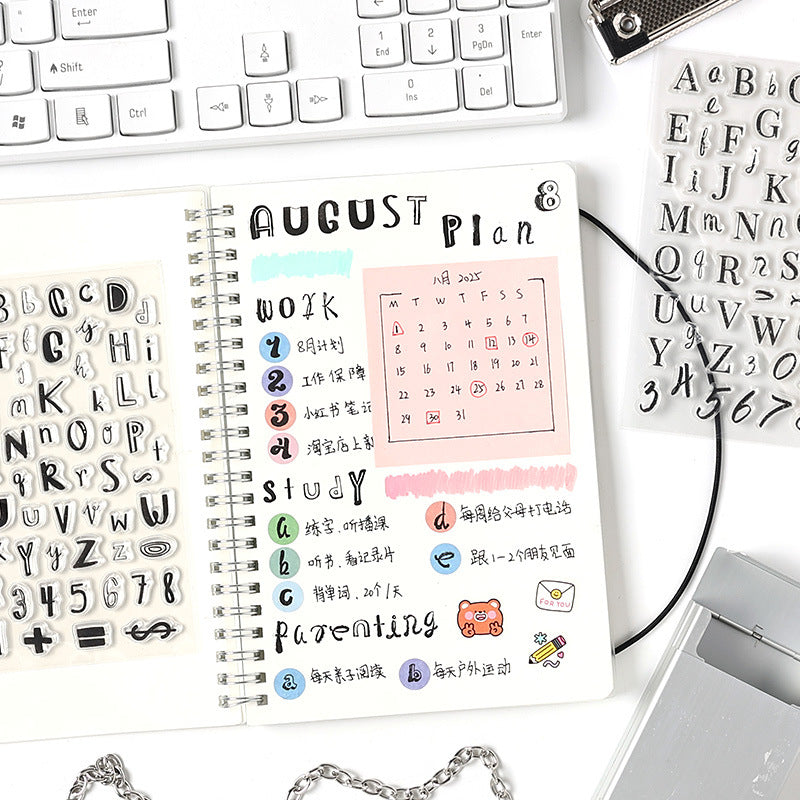 Enter
Shift
Ctrl
1 End
2
3 PgDn
Enter
0 Ins
. Del
AUGUST Plan 8
八月 2025
M T W T F S S
1 2 3 4 5 6 7
8 9 10 11 12 13 14
15 16 17 18 19 20 21
22 23 24 25 26 27 28
29 30 31
work
1 8月计划
2 工作保障
3 小红书笔记
4 淘宝店上新
study
a 练字、听播课
b 听书、看记录片
c 背单词、20个/天
d 每周给父母打电话
e 跟1-2个朋友见面
Parenting
a 每天亲子阅读
b 每天户外运动
FOR YOU
B b C c D d
G g H h i
m K k L l
N n O o P
q R r S s
U u V v w W
Y y Z z
3 4 5 6 7 8
+ = $
A a B b C
e
E f F G g
I i J j K
M m N n N
Q q R r S
U u V W
Y y Z 3 0
3 4 5 6 7 8